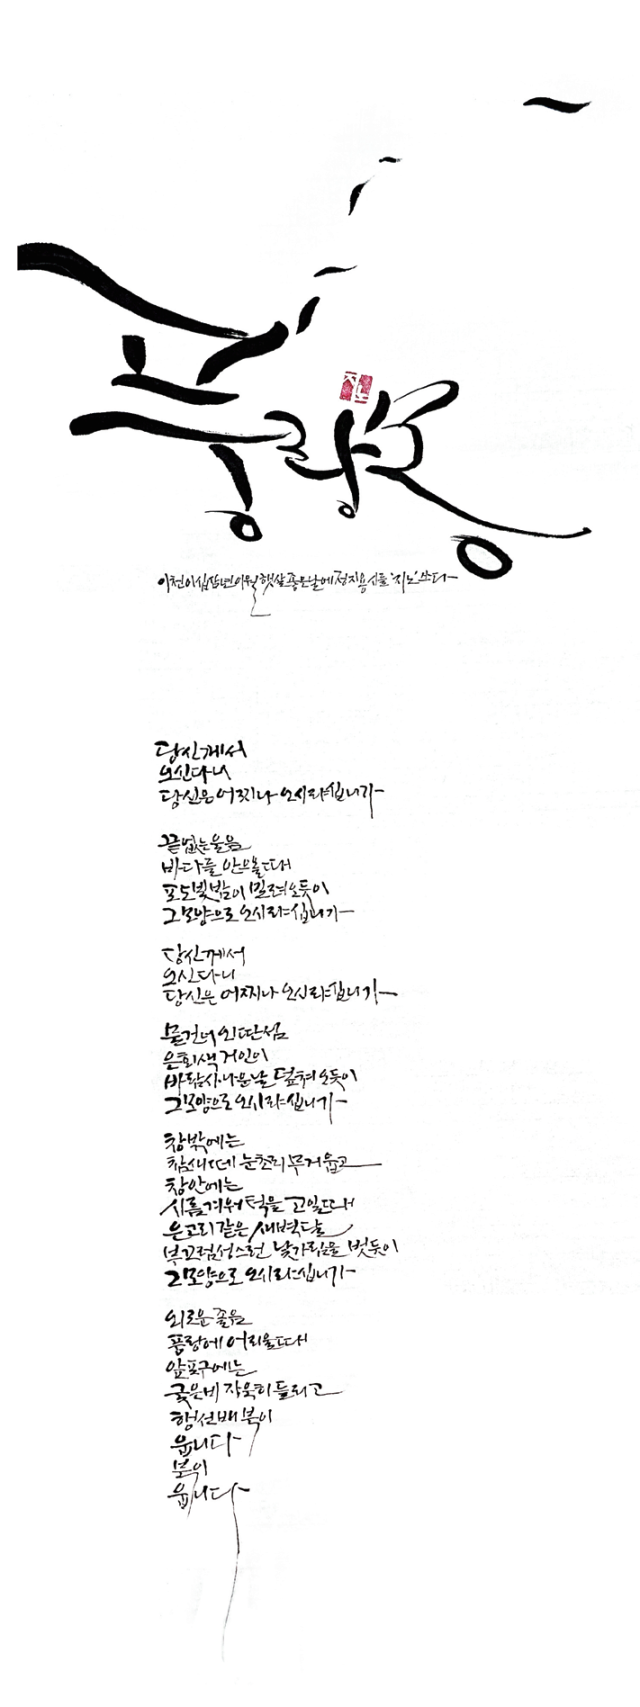 풍랑몽
지노
이천이십삼년이월 햇살 좋은날에 정지용 시를 '지노' 쓰다
당신께서
오신다니
당신은 어찌나 오시랴십니가
끝없는 울음
바다를 안으올때
포도빛 밤이 밀려오듯이
그모양으로 오시랴십니가
당신께서
오신다니
당신은 어찌나 오시랴십니가
물건너 외딴섬
은회색 거인이
바람사나운날 덮쳐오듯이
그모양으로 오시랴십니가
창밖에는
참새떼 눈초리 무거웁고
창안에는
시름겨워 턱을 고일때
은고리같은 새벽달
부끄럼성스런 낯가림을 벗듯이
그모양으로 오시랴십니가
외로운 졸음
풍랑에 어리울때
앞포구에는
궂은비 자욱히 들리고
행선배 북이
웁니다
북이
웁니다